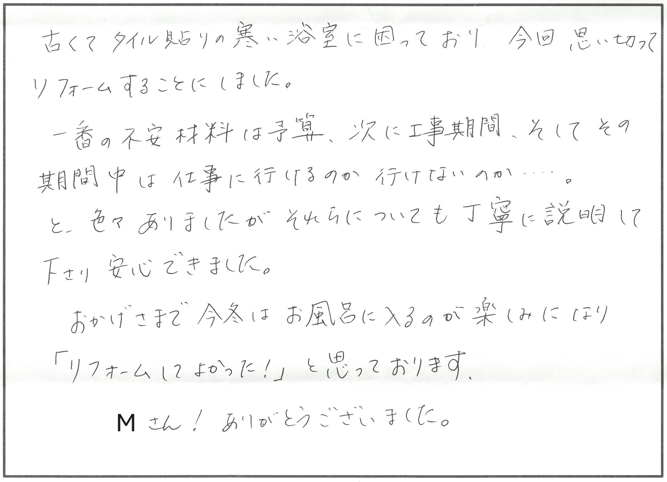 古くてタイル貼りの寒い浴室に困っており 今回思い切って
リフォームすることにしました。
一番の不安材料は予算、次に工事期間、そしてその
期間中は仕事に行けるのか行けないのか……。
と、色々ありましたがそれらについても丁寧に説明して
下さり安心できました。
おかげさまで今冬はお風呂に入るのが楽しみになり
「リフォームしてよかった!」と思っております。
Mさん! ありがとうございました。